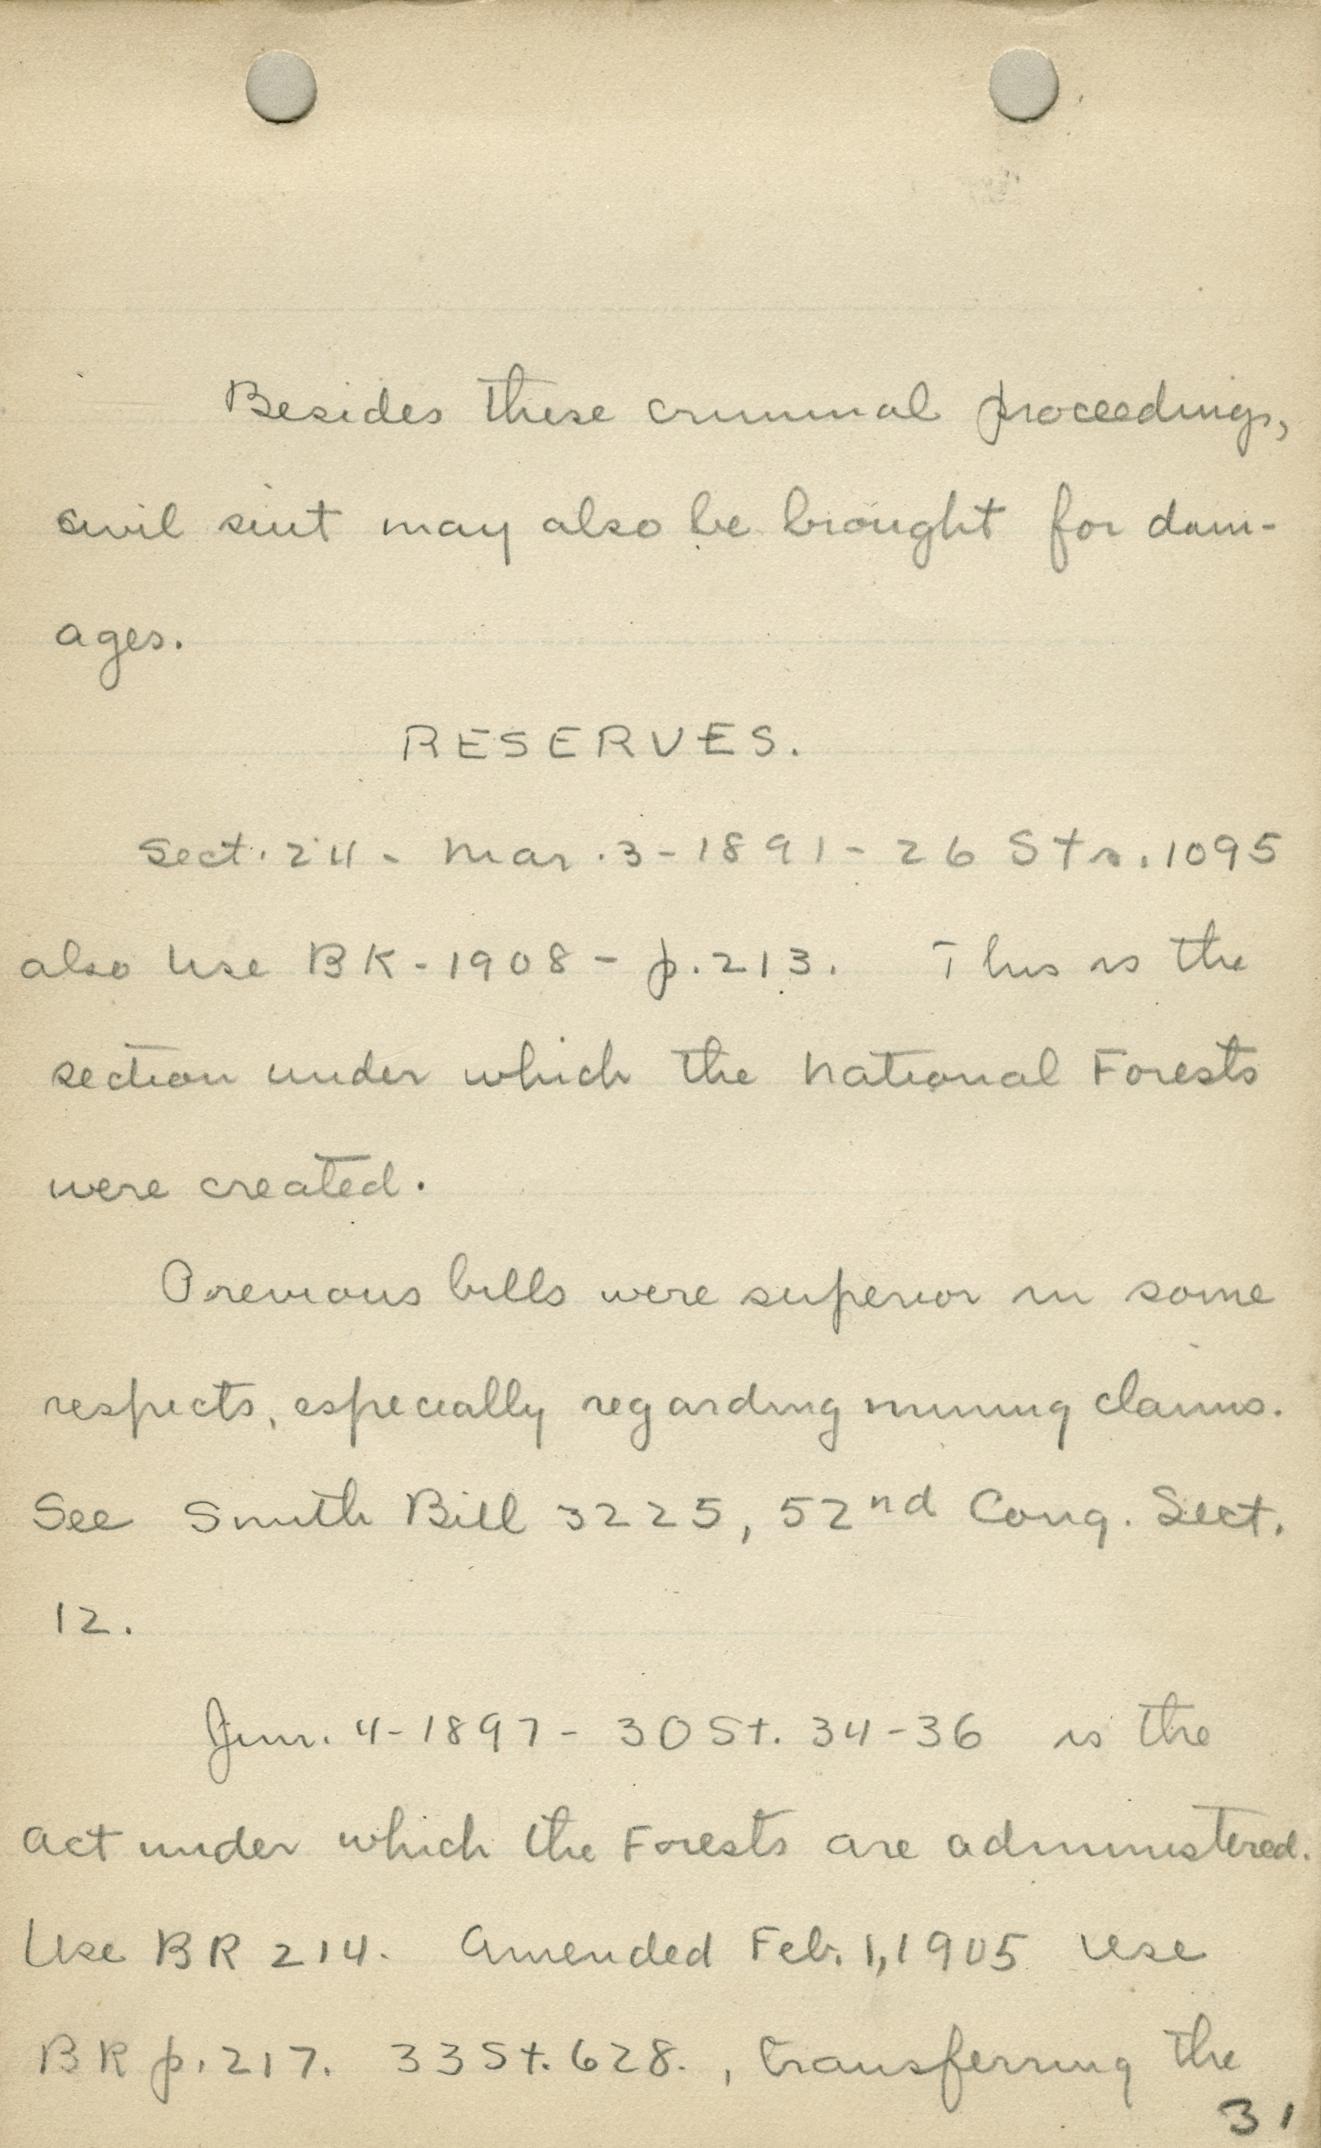 Besides these criminal proceedings,
civil suit may also be brought for dam-
ages.
RESERVES.
Sect. 24 - Mar. 3 - 1891 - 26 Sts. 1095
also Use BK - 1908 - p. 213. This is the
section under which the National Forests
were created.
Previous bills were superior in some
respects, especially regarding mining claims.
See Smith Bill 3225, 52nd Cong. Sect.
12.
Jun. 4 - 1897 - 30 St. 34-36 is the
act under which the Forests are administered.
Use BR 214. Amended Feb. 1, 1905 Use
BR p. 217. 33 St. 628. , transferring the
31